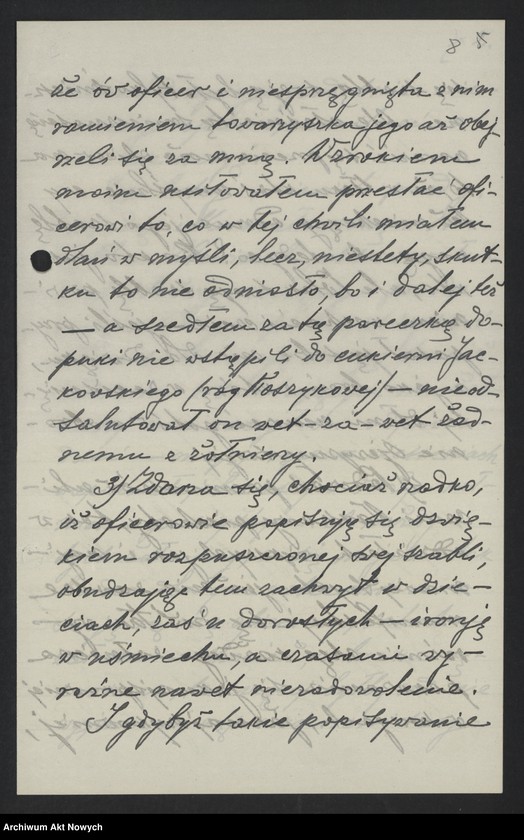 8 5
że ów oficer i niesprzęgnięta z nim
ramieniem towarzyszka jego aż obej-
rzeli się za mną. Wzrokiem
moim usiłowałem przesłać ofi-
cerowi to, co w tej chwili miałem
dlań w myśli, lecz, niestety, skut-
ku to nie odniosło, bo i dalej też
— a szedłem za tą pareczką do-
póki nie wstąpili do cukierni Jac-
kowskiego (róg Koszykowej) — nieod-
salutował on wet-za-wet żad-
nemu z żołnierzy.
3/ Zdarza się, chociaż rzadko,
iż oficerowie popisują się dźwię-
kiem rozpuszczonej swej szabli,
obudzając tem zachwyt w dzie-
ciach, zaś u dorosłych — ironję
w uśmiechu, a czasami wy-
raźne nawet niezadowolenie.
I gdybyż takie popisywanie
Archiwum Akt Nowych